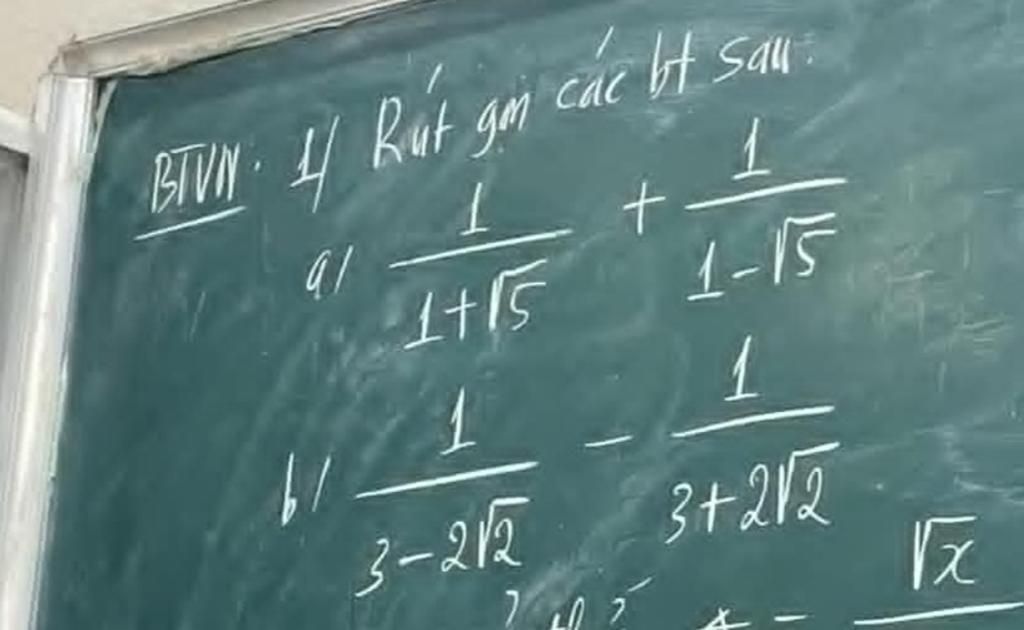 BTVN. 1/ Rút gọn các bt sau.
a/ 1/(1+√5) + 1/(1-√5)
b/ 1/(3-2√2) - 1/(3+2√2)
√x